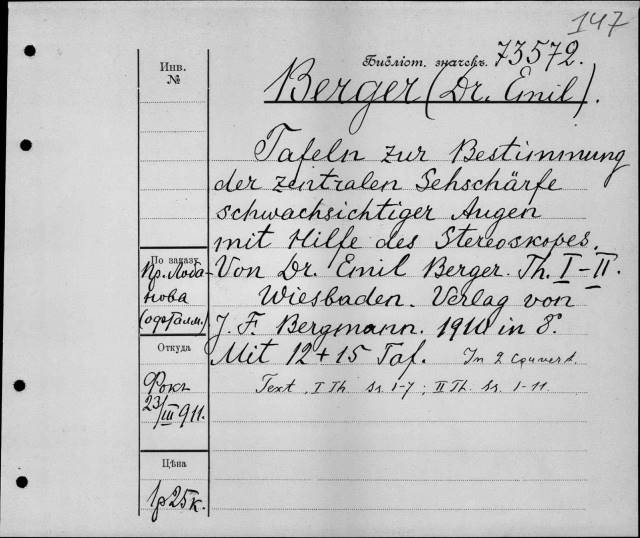 147
Библіот. значекъ. 73572.
Berger (Dr. Emil).
Tafeln zur Bestimmung
der zentralen Sehschärfe
schwachsichtiger Augen
mit Hilfe des Stereoskopes.
Von Dr. Emil Berger. Th. I-II.
Wiesbaden. Verlag von
J. F. Bergmann. 1910 in 8°
Mit 12+15 Taf. In 2 Couvert.
Text, I Th. Ss. 1-7; II Th. Ss. 1-11.
Инв.
№
По заказу
Пр. Лоба-
нова
(офталм.)
Откуда
Фокъ
23/III 911.
Цѣна
1р 25к.